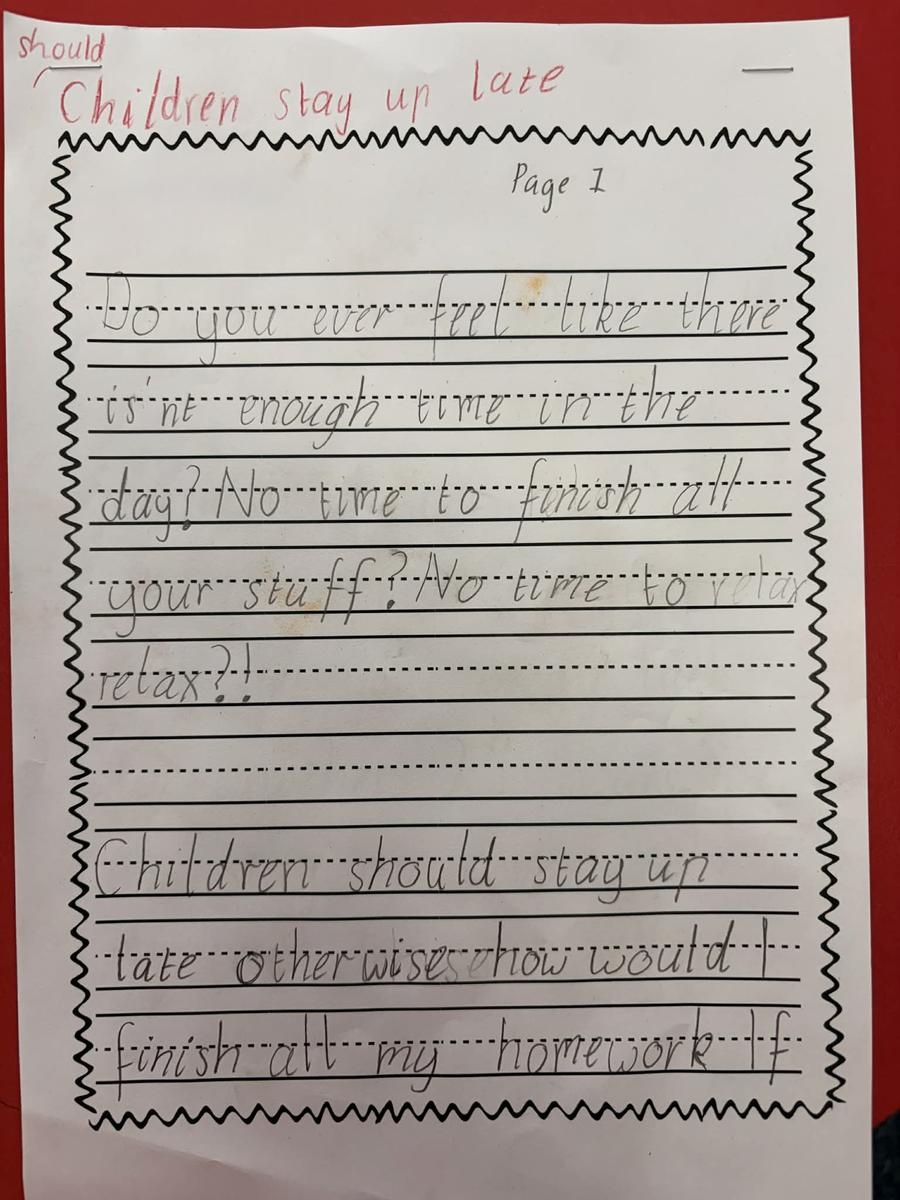 should
Children stay up late
Page 1
Do you ever feel like there
is'nt enough time in the
day? No time to finish all
your stuff? No time to relax
relax?!
Children should stay up
late otherwise how would I
finish all my homework If